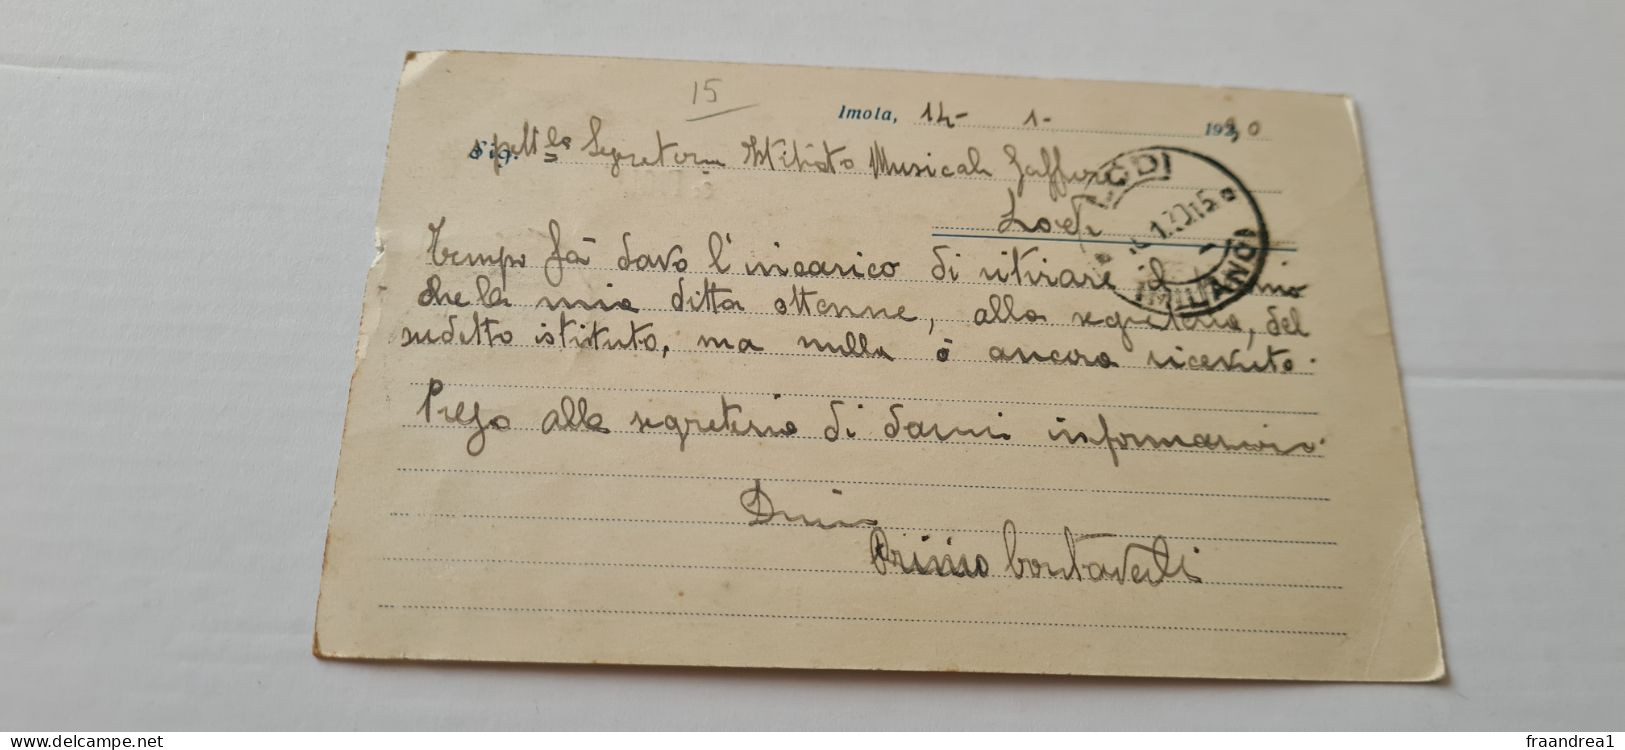 15
Imola, 14- 1- 1930
Sig. Spett.le Segreteria Istituto Musicale Gaffurio
Lodi
LODI
MILANO
Tempo fà davo l'incarico di ritirare il
che la mia ditta ottenne, alla segreteria, del
sudetto istituto, ma nulla ò ancora ricevuto.
Prego alla segreteria di darmi informazioni
Primo
delcampe.net
fraandrea1